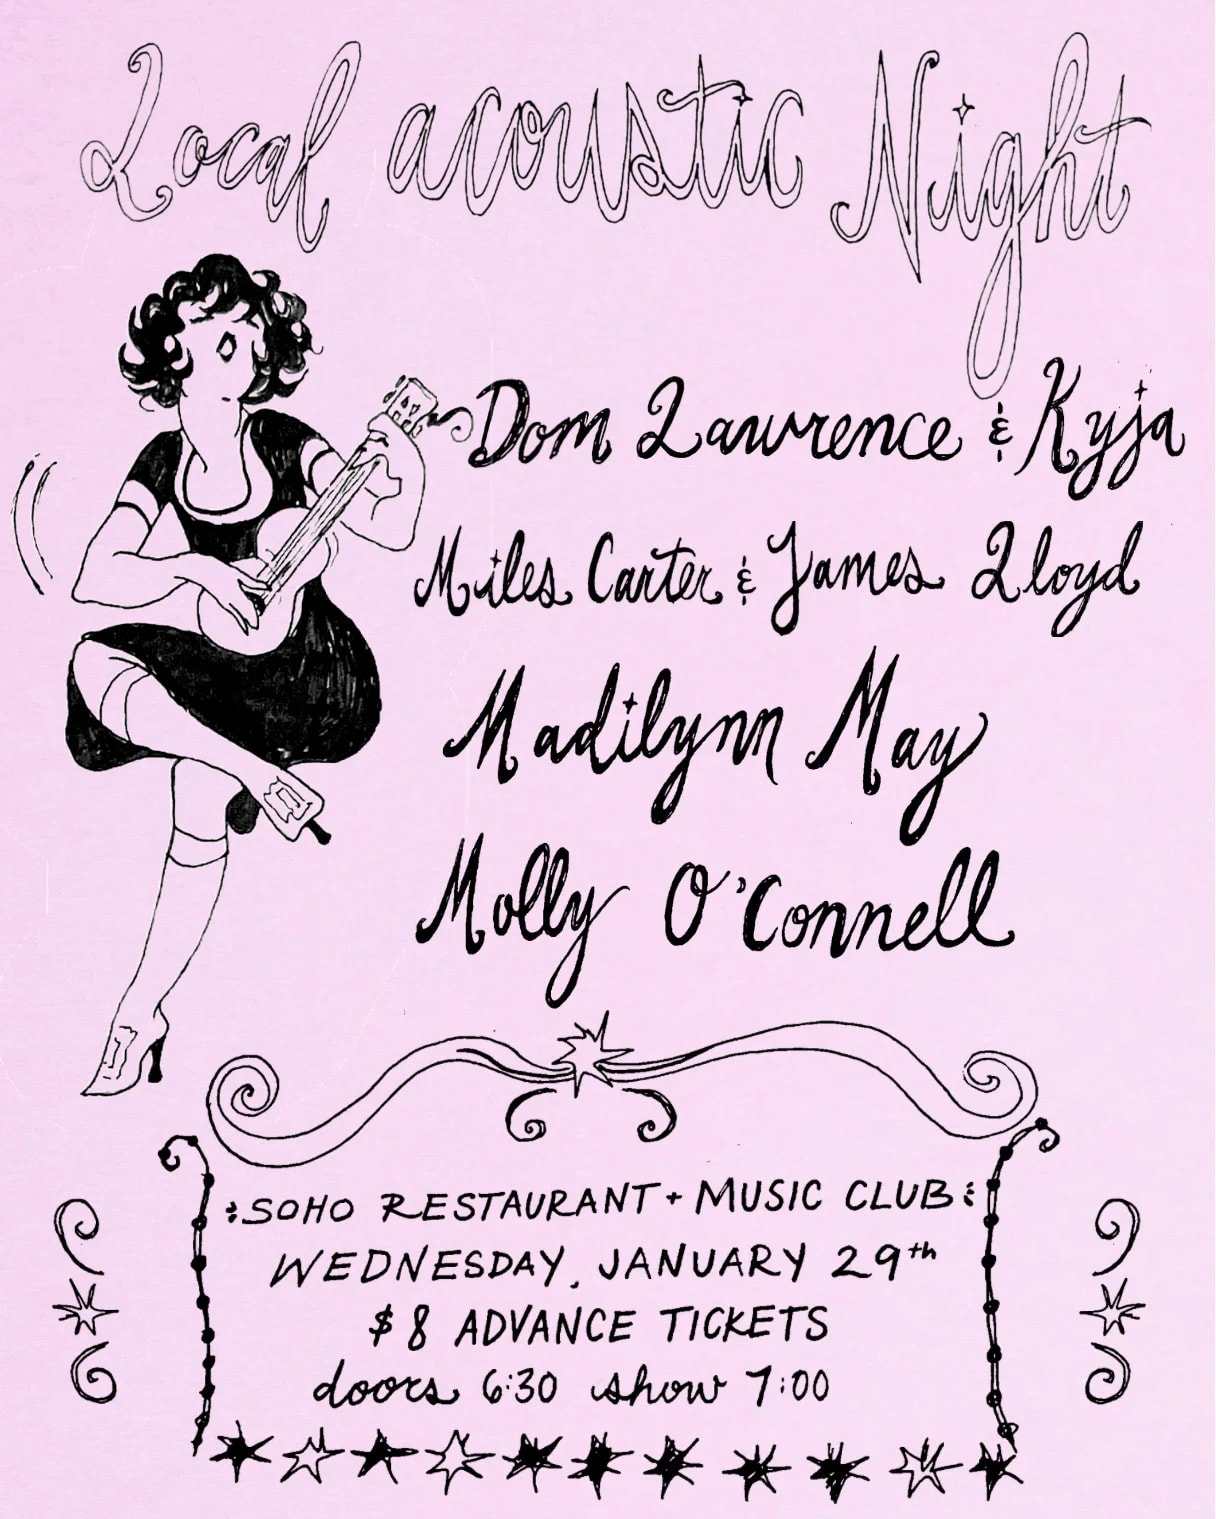 Local acoustic Night
Dom Lawrence & Kyja
Miles Carter & James Lloyd
Madilynn May
Molly O'Connell
SOHO RESTAURANT + MUSIC CLUB
WEDNESDAY, JANUARY 29th
$8 ADVANCE TICKETS
doors 6:30 show 7:00